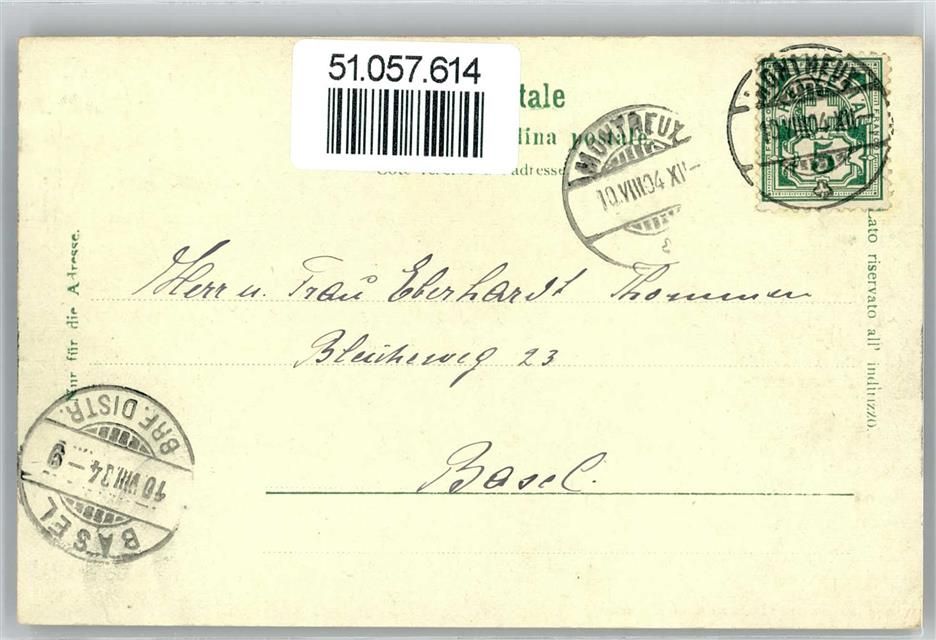 51.057.614
tale
lina postale.
adresse
MONTREUX
10.VIII.04 XII—
MONTREUX
10.VIII.04 XII—
5
FRANCO
Nur für die Adresse.
Lato riservato all' indirizzo.
Herr u. Frau Eberhardt Thommen
Bleicheweg 23
Basel.
BRF. DISTR.
10 VIII.04—9
BASEL